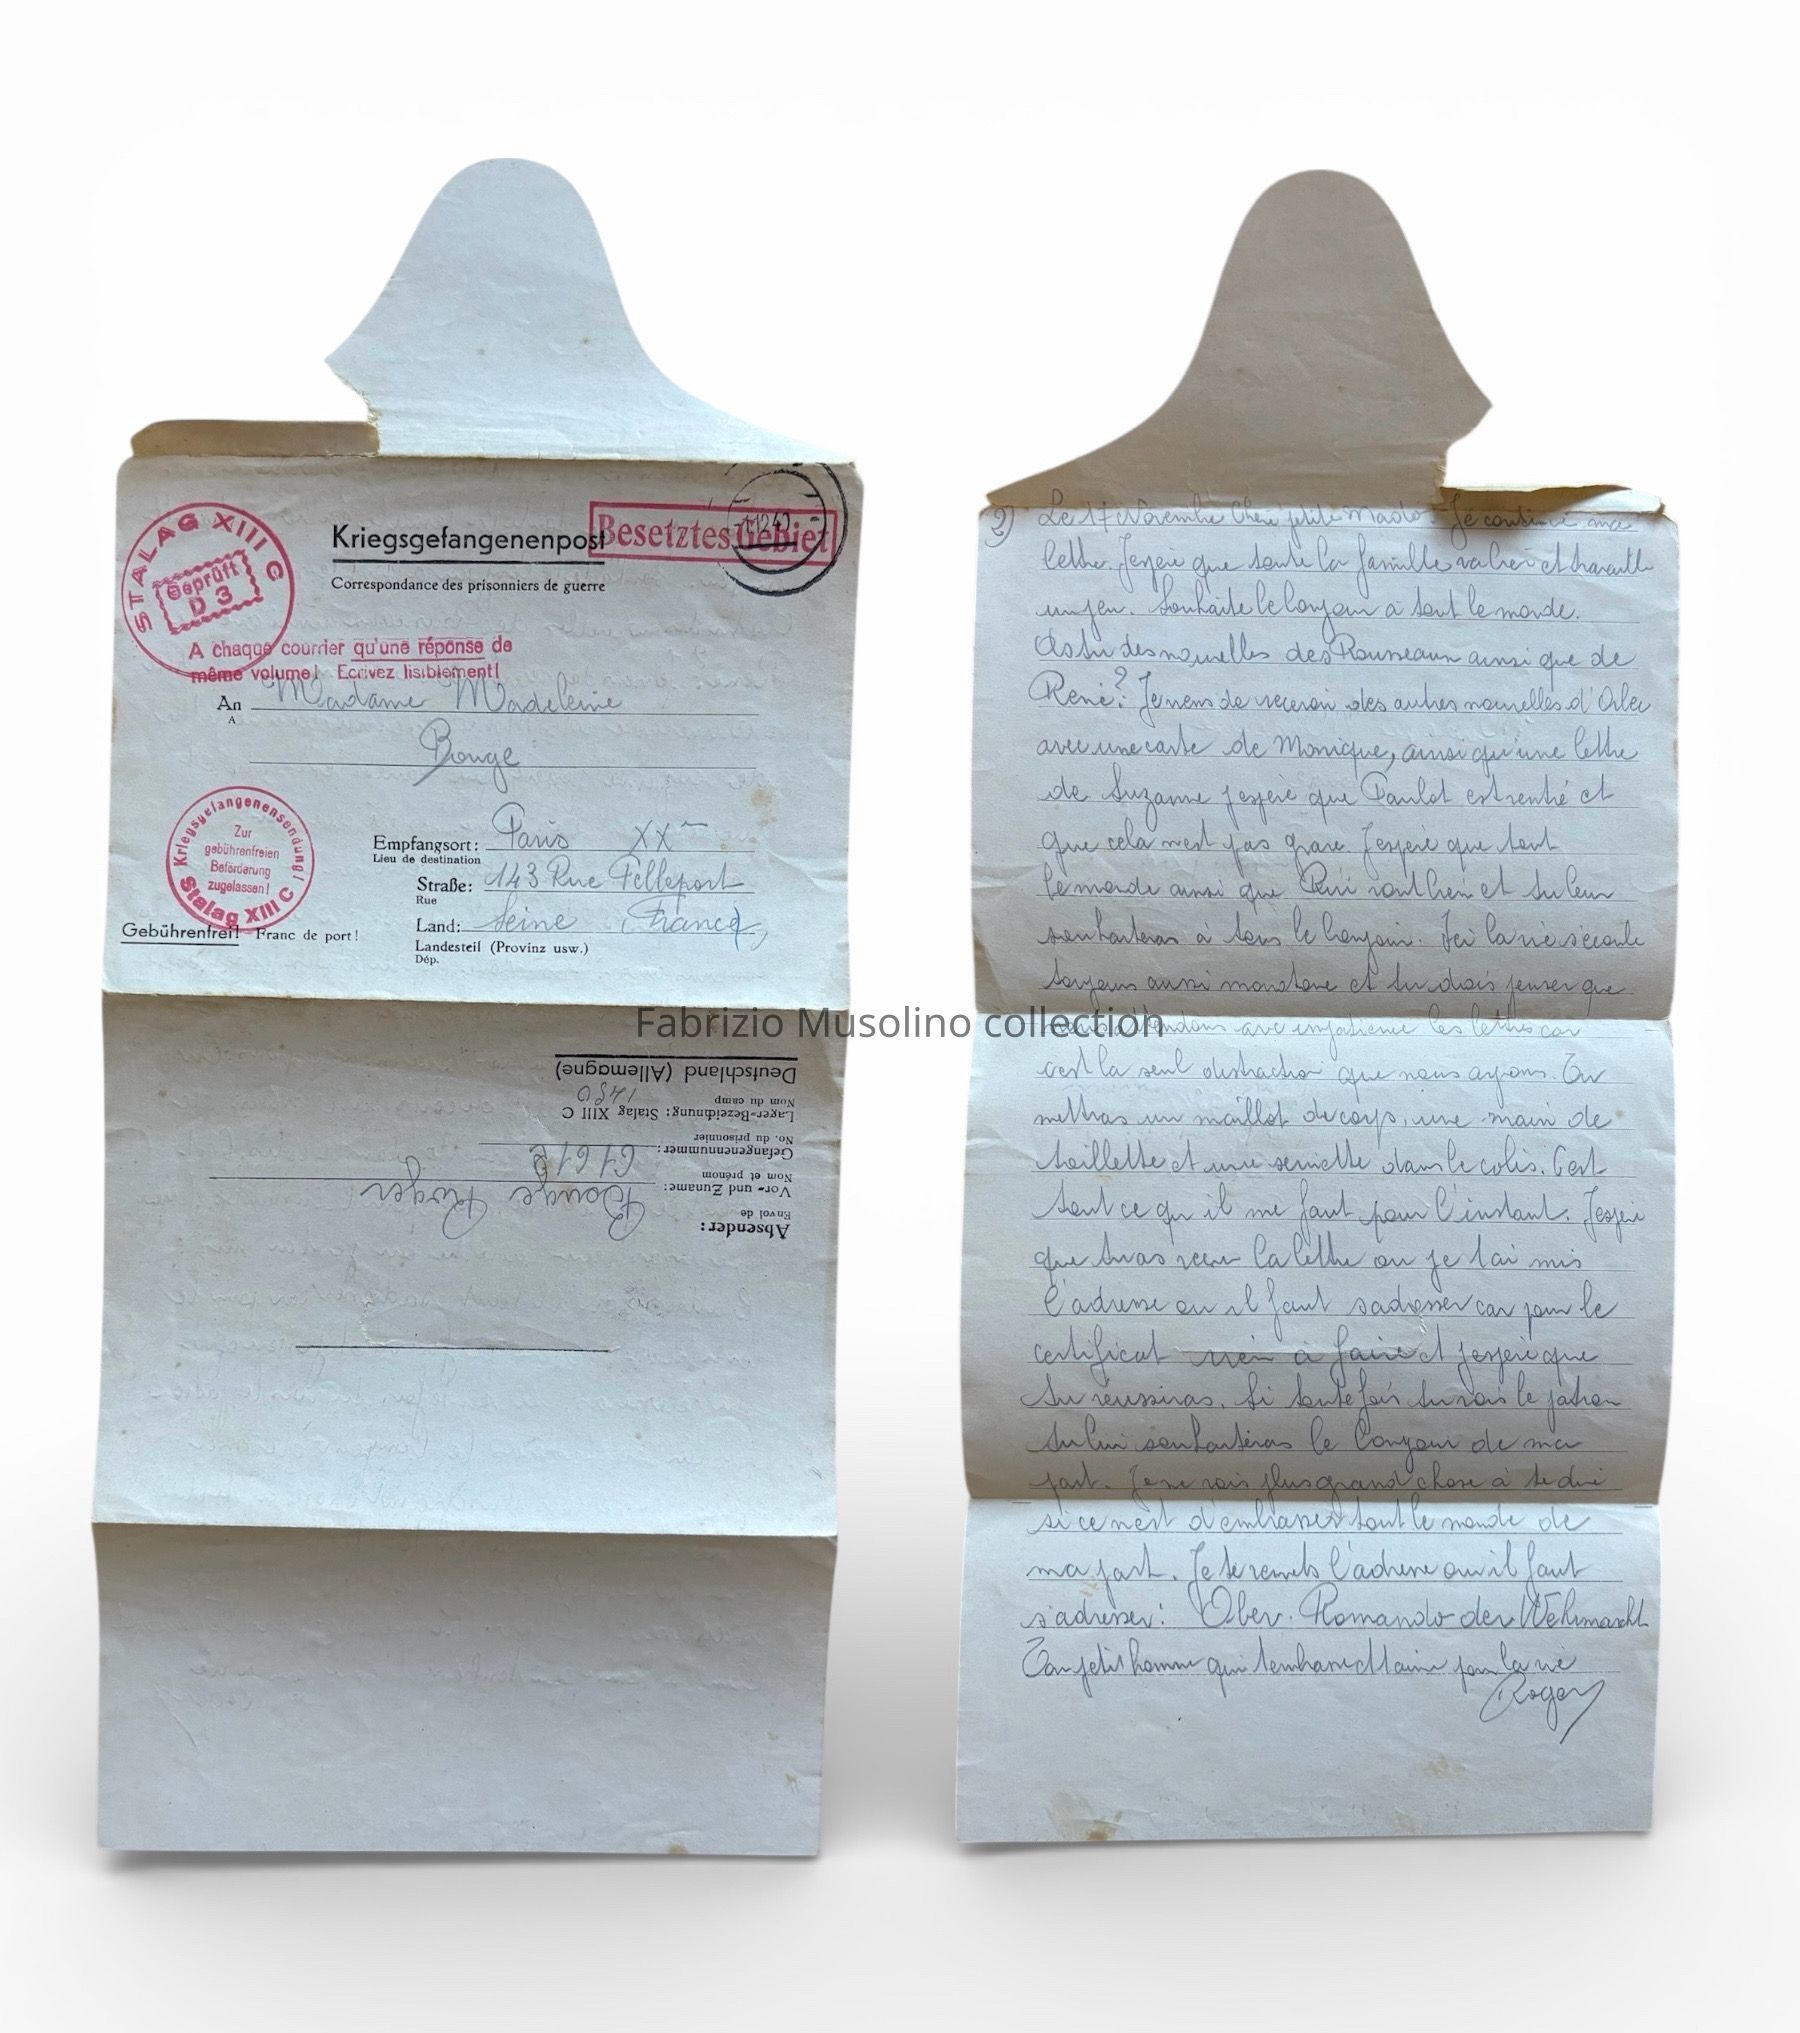 STALAG XIII C
Geprüft
D 3
Kriegsgefangenenpost
Besetztes Gebiet
Correspondance des prisonniers de guerre
A chaque courrier qu'une réponse de
même volume! Ecrivez lisiblement!
An Madame Madeleine
A
Bouge
Kriegsgefangenensendung!
Zur
gebührenfreien
Beförderung
zugelassen!
Stalag XIII C
Empfangsort: Paris XX
Lieu de destination
Straße: 143 Rue Pelleport
Rue
Land: Seine France
Landesteil (Provinz usw.)
Dép.
Gebührenfrei! Franc de port!
Absender:
Envoi de
Vor- und Zuname: Bouge Roger
Nom et prénom
Gefangenennummer:
No. du prisonnier
Lager-Bezeichnung: Stalag XIII C
Nom du camp
Deutschland (Allemagne)
2) Le 17 Novembre Chère petite Mado. Je continue ma
lettre. J'espère que toute la famille va bien et travaille
un peu. Souhaite le bonjour à tout le monde.
As tu des nouvelles des Rousseaux ainsi que de
René? Je viens de recevoir des autres nouvelles d'
avec une carte de Monique, ainsi qu'une lettre
de Suzanne j'espère que Paulot est rentré et
que cela n'est pas grave. J'espère que tout
le monde ainsi que vont bien et tu leur
souhaiteras à tous le bonjour. Ici la vie s'écoule
toujours aussi monotone et tu dois penser que
nous attendons avec impatience les lettres car
c'est la seul distraction que nous ayons. Tu
mettras un maillot de corps, une main de
toillette et une serviette dans le colis. C'est
tout ce qu'il me faut pour l'instant. J'espère
que tu as reçu la lettre ou je t'ai mis
l'adresse ou il faut s'adresser car pour le
certificat rien à faire et j'espère que
tu réussiras. Si toute fois tu vois le patron
tu lui souhaiteras le bonjour de ma
part. Je ne vois plus grand chose à te dire
si ce n'est d'embrasser tout le monde de
ma part. Je te remets l'adresse ou il faut
s'adresser: Ober. Komando der Wehrmacht
Ton petit homme qui t'embrasse et t'aime pour la vie
Roger
Fabrizio Musolino collection